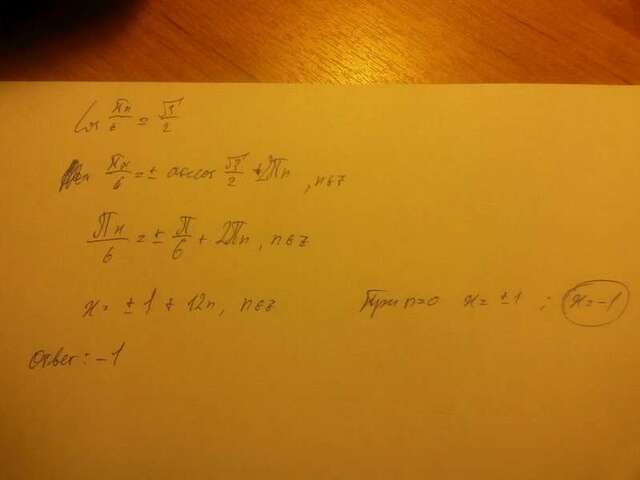 cos πx/6 = √3/2
πx/6 = ± arccos √3/2 + 2πn, n∈z
πx/6 = ± π/6 + 2πn, n∈z
x = ± 1 + 12n, n∈z При n=0 x = ±1 ; x=-1
Ответ: -1